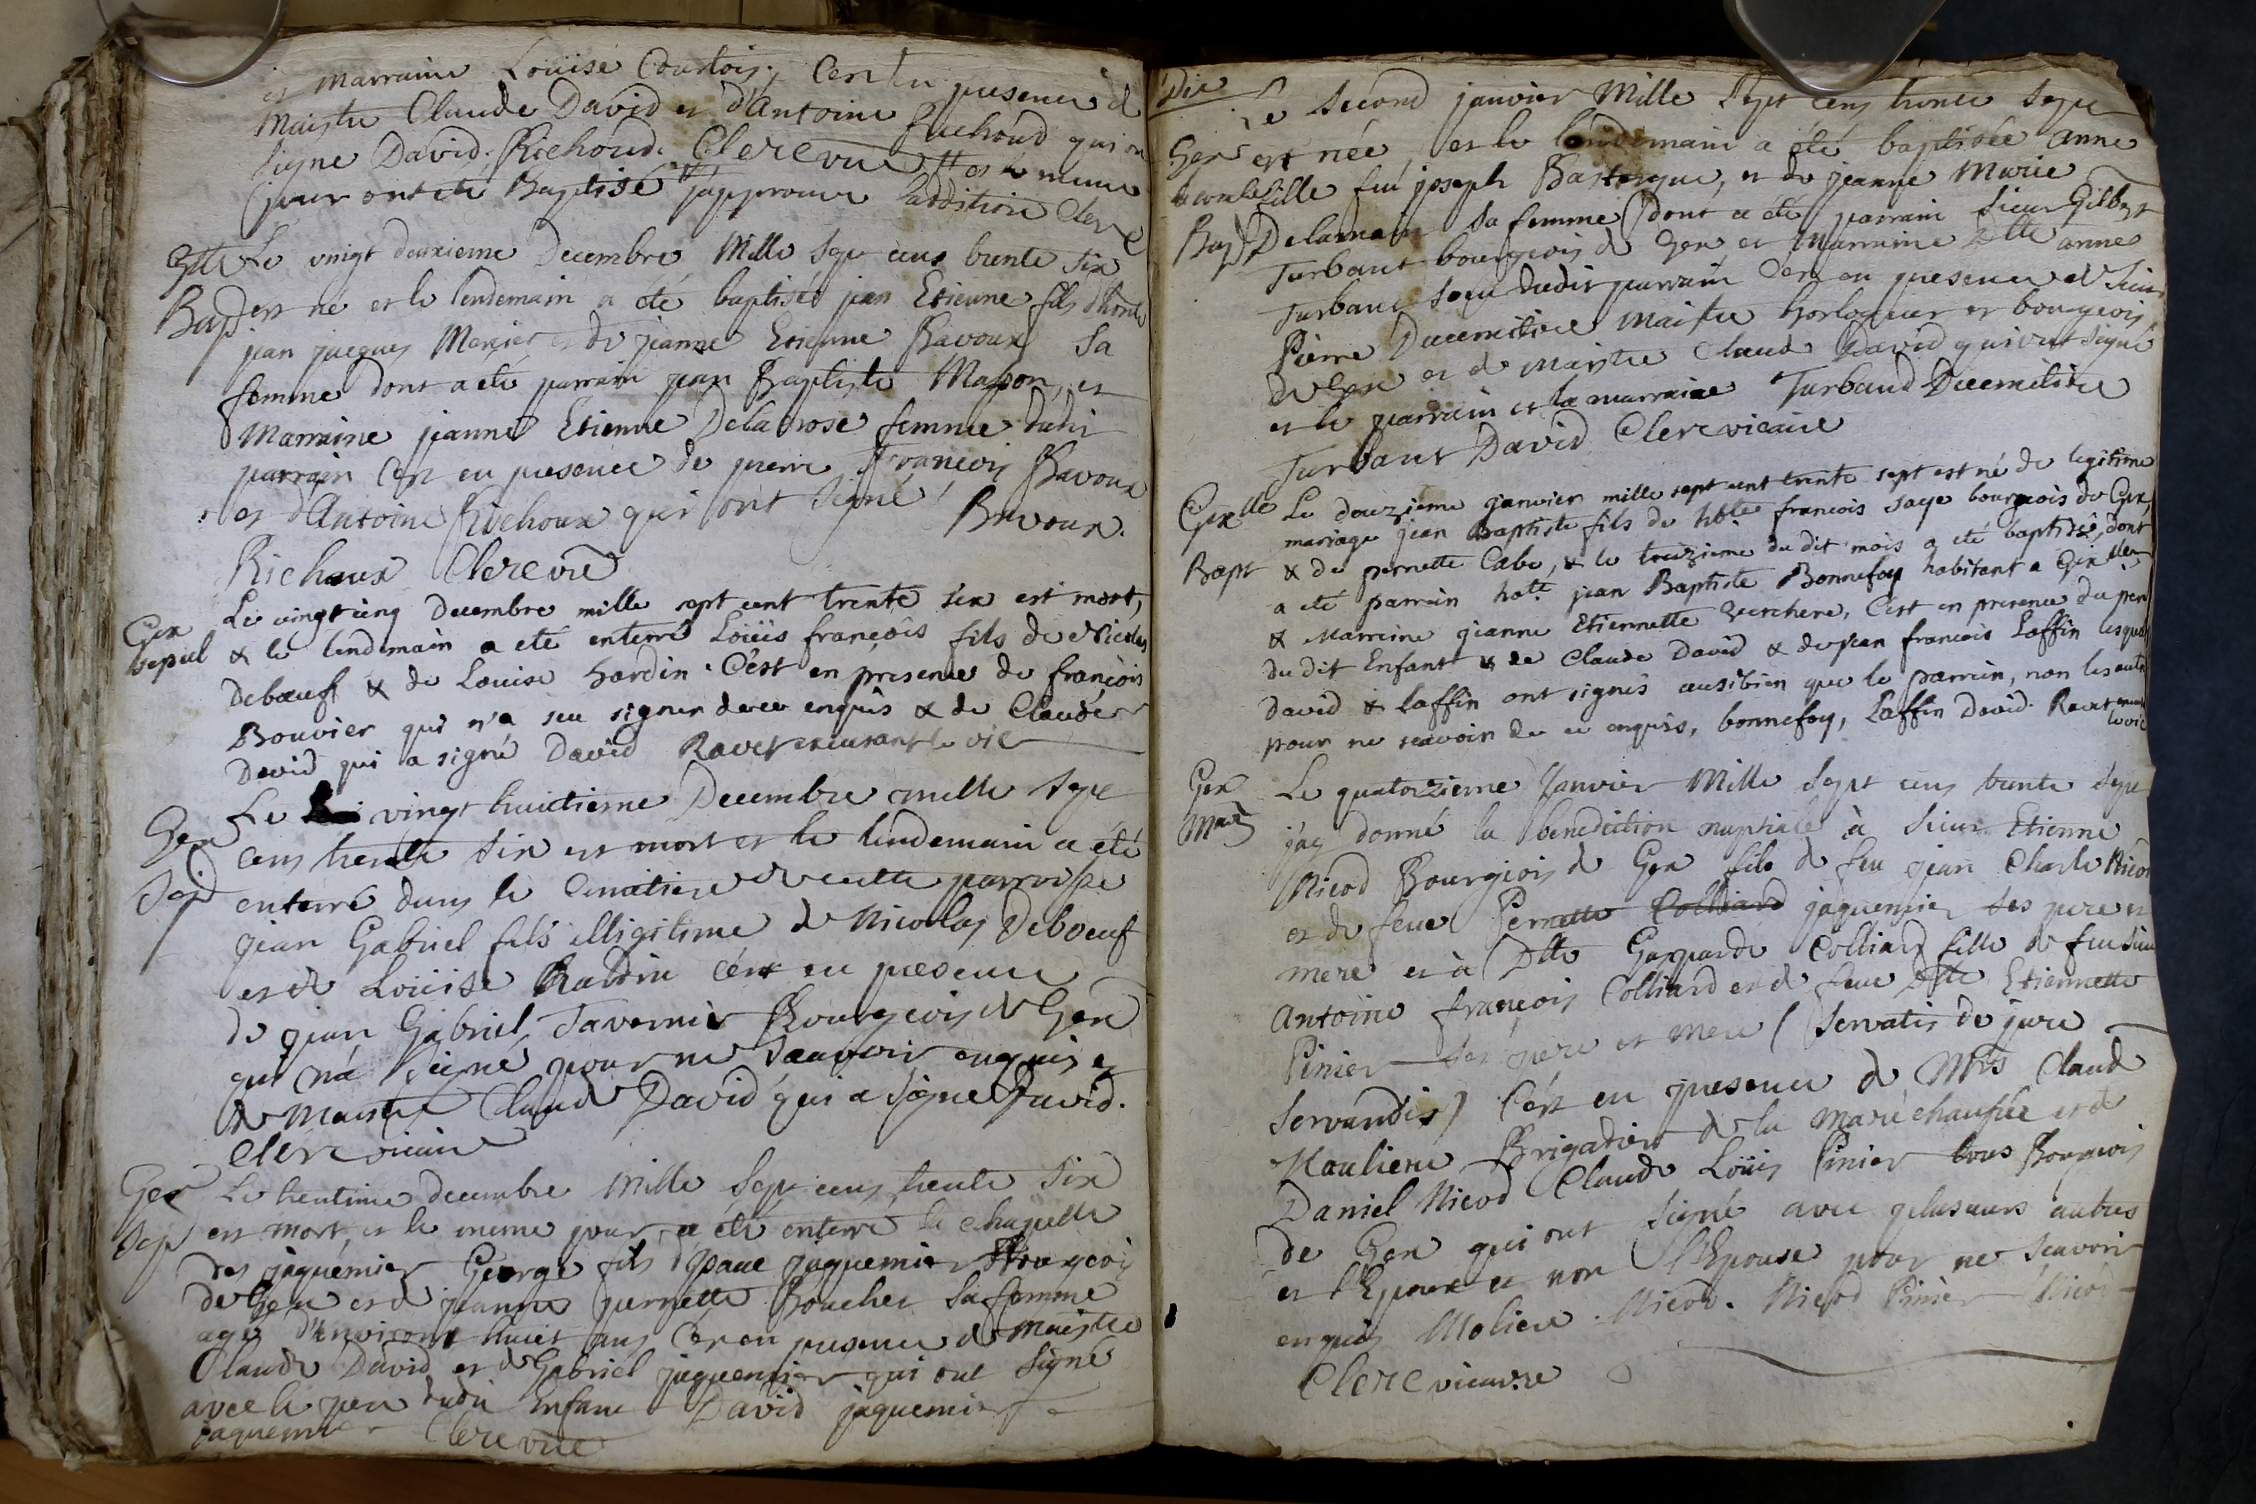 et marraine Louise Courtois, C'en en presence de
Maistre Claude David et d'antoine Richoud qui on
signe David. Richoud. Clerc vic et le meme
jour ont ete Baptisé j'approuve l'addition Clerc
Gex Le vingt deuxieme Decembre Mille sept cens trente six
Bap est né et le lendemain a été baptisé jean Etienne fils d'honble
jean jacques Mercier et de jeanne Etienne Bavoux sa
femme dont a eté parrain jean Baptiste Masson, et
Marraine jeanne Etienne Delabrose femme dudit
parrain C'est en presence de pierre François Bavoux
et d'Antoine Richoux qui ont signé Bavoux.
Richoux Clerc vic
Gex Le vingt cinq Decembre mille sept cent trente six est mort,
sepul & le lendemain a eté enterré Loüis françois fils de Nicolas
Deboeuf & de Louise hardin. C'est en presence de françois
Bouvier qui n'a seu signer de ce enquis & de Claude
David qui a signé David Ravet excusant le vic
Gex Le vingt huictieme Decembre mille sept
Sep cens trente six est mort et le lendemain a été
enterré dans le Cimetiere de cette parroisse
jean Gabriel fils illigitime de Nicolas Deboeuf
et de Loüise hardin C'est en presence
de jean Gabriel Tavernier Bourgeois de Gex
qui n'a signé pour ne scavoir enquis et
de Maistre Claude David qui a signé David.
Clerc vicaire
Gex Le trentieme decembre Mille sept cens trente six
Sep est mort, et le meme jour a été enterré la chapelle
des jaquemier George fils d' jaquemier Bourgeois
de Gex et de jeanne pernette Boucher sa femme
agé d'environ huict ans C'est en presence de Maistre
Claude David et de Gabriel jaquemier qui ont signé
avec le pere dudit Enfant David jaquemier
jaquemier Clerc vic
Dix
Le second janvier Mille sept cens trente sept
Gex est née, et le lendemain a été baptisée anne
fille feu joseph Bastergue, et de jeanne Marie
Bap Delamain sa femme dont a été parrain sieur Gilbert
Turbaut bourgeois de Gex et Marraine Dlle anne
Turbaut soeur dudit parrain C'est en presence de sieur
Pierre Ducimetiere Maistre horlogeur et bourgeois
de Gex et de Maistre Claude David qui ont signé
et le parrain et la marraine Turbaud Ducimetiere
Turbaut David Clerc vicaire
Gex lle Le douzieme janvier mille sept cent trente sept est né de legitime
mariage jean Baptiste fils de hble francois saye bourgeois de Gex,
Bapt & de pernette Cabe, & le treizieme du dit mois a eté baptisé, dont
a eté parrain hble jean Baptiste Bonnefoy habitant a Gex
& Marreine jeanne Etiennette Verchere, C'est en presence du pere
du dit Enfant & de Claude David & de jean francois Laffin lesquels
David & Laffin ont signés aussibien que le parrein, non les autres
pour ne scavoir de ce enquis, bonnefoy, Laffin David. Ravet
le vic
Gex Le quatorzieme Janvier Mille sept cens trente sept
Mar j'ay donné la benediction nuptiale à sieur Etienne
Nicod Bourgeois de Gex fils de feu jean Charle Nicod
et de feue Pernette Colliard jaquemier ses pere et
mere et à Dlle Gaspardе Colliard fille de feu sieur
Antoine françois Colliard et de feue Dlle Etiennette
Pinier ses pere et mere (servatis de jure
servandis) C'est en presence de Mrs Claude
Mouliere Brigadier de la Marechaussée et de
Daniel Nicod Claude Loüis Pinier tous Bourgeois
de Gex qui ont signé avec plusieurs autres
et l'Epoux et non l'Epouse pour ne scavoir
enquis Moliere. Nicod. Nicod Pinier Nicod
Clerc vicaire